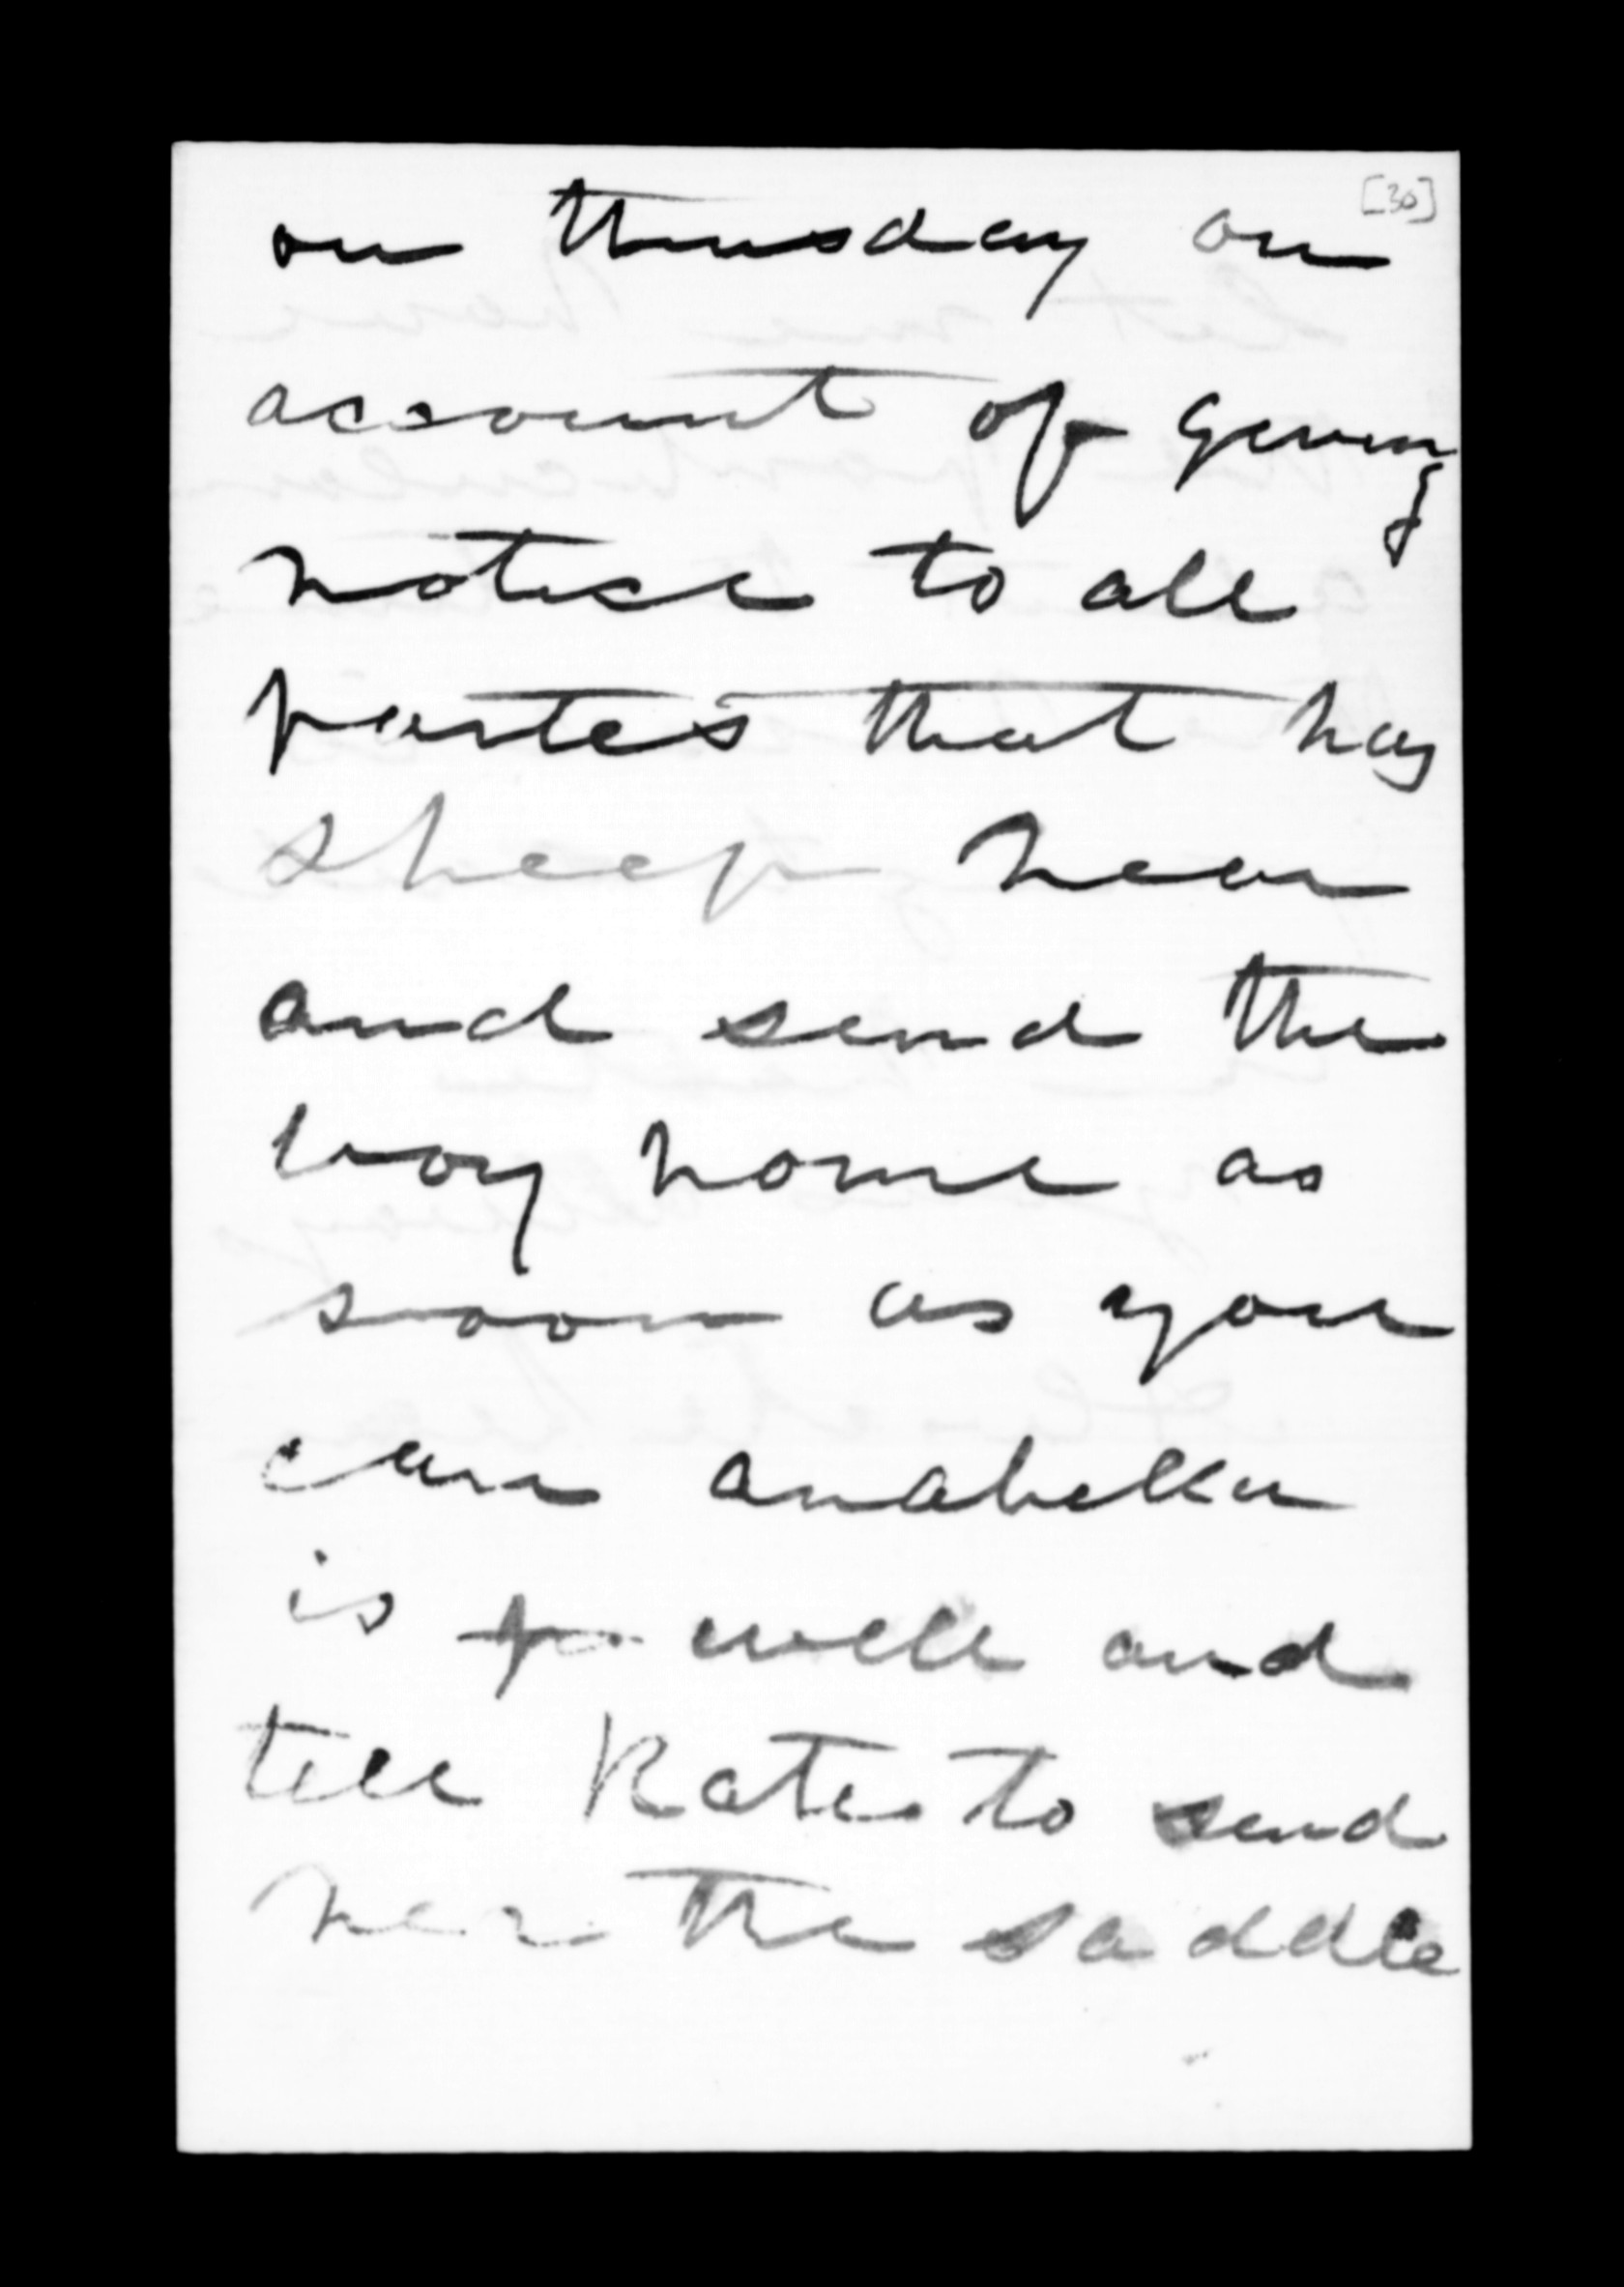 [30]
on thursday on
account of geving
notice to all
partes that has
sheep near
and send the
boy home as
soon as you
can anabella
is well and
tell Kate to send
her the saddle